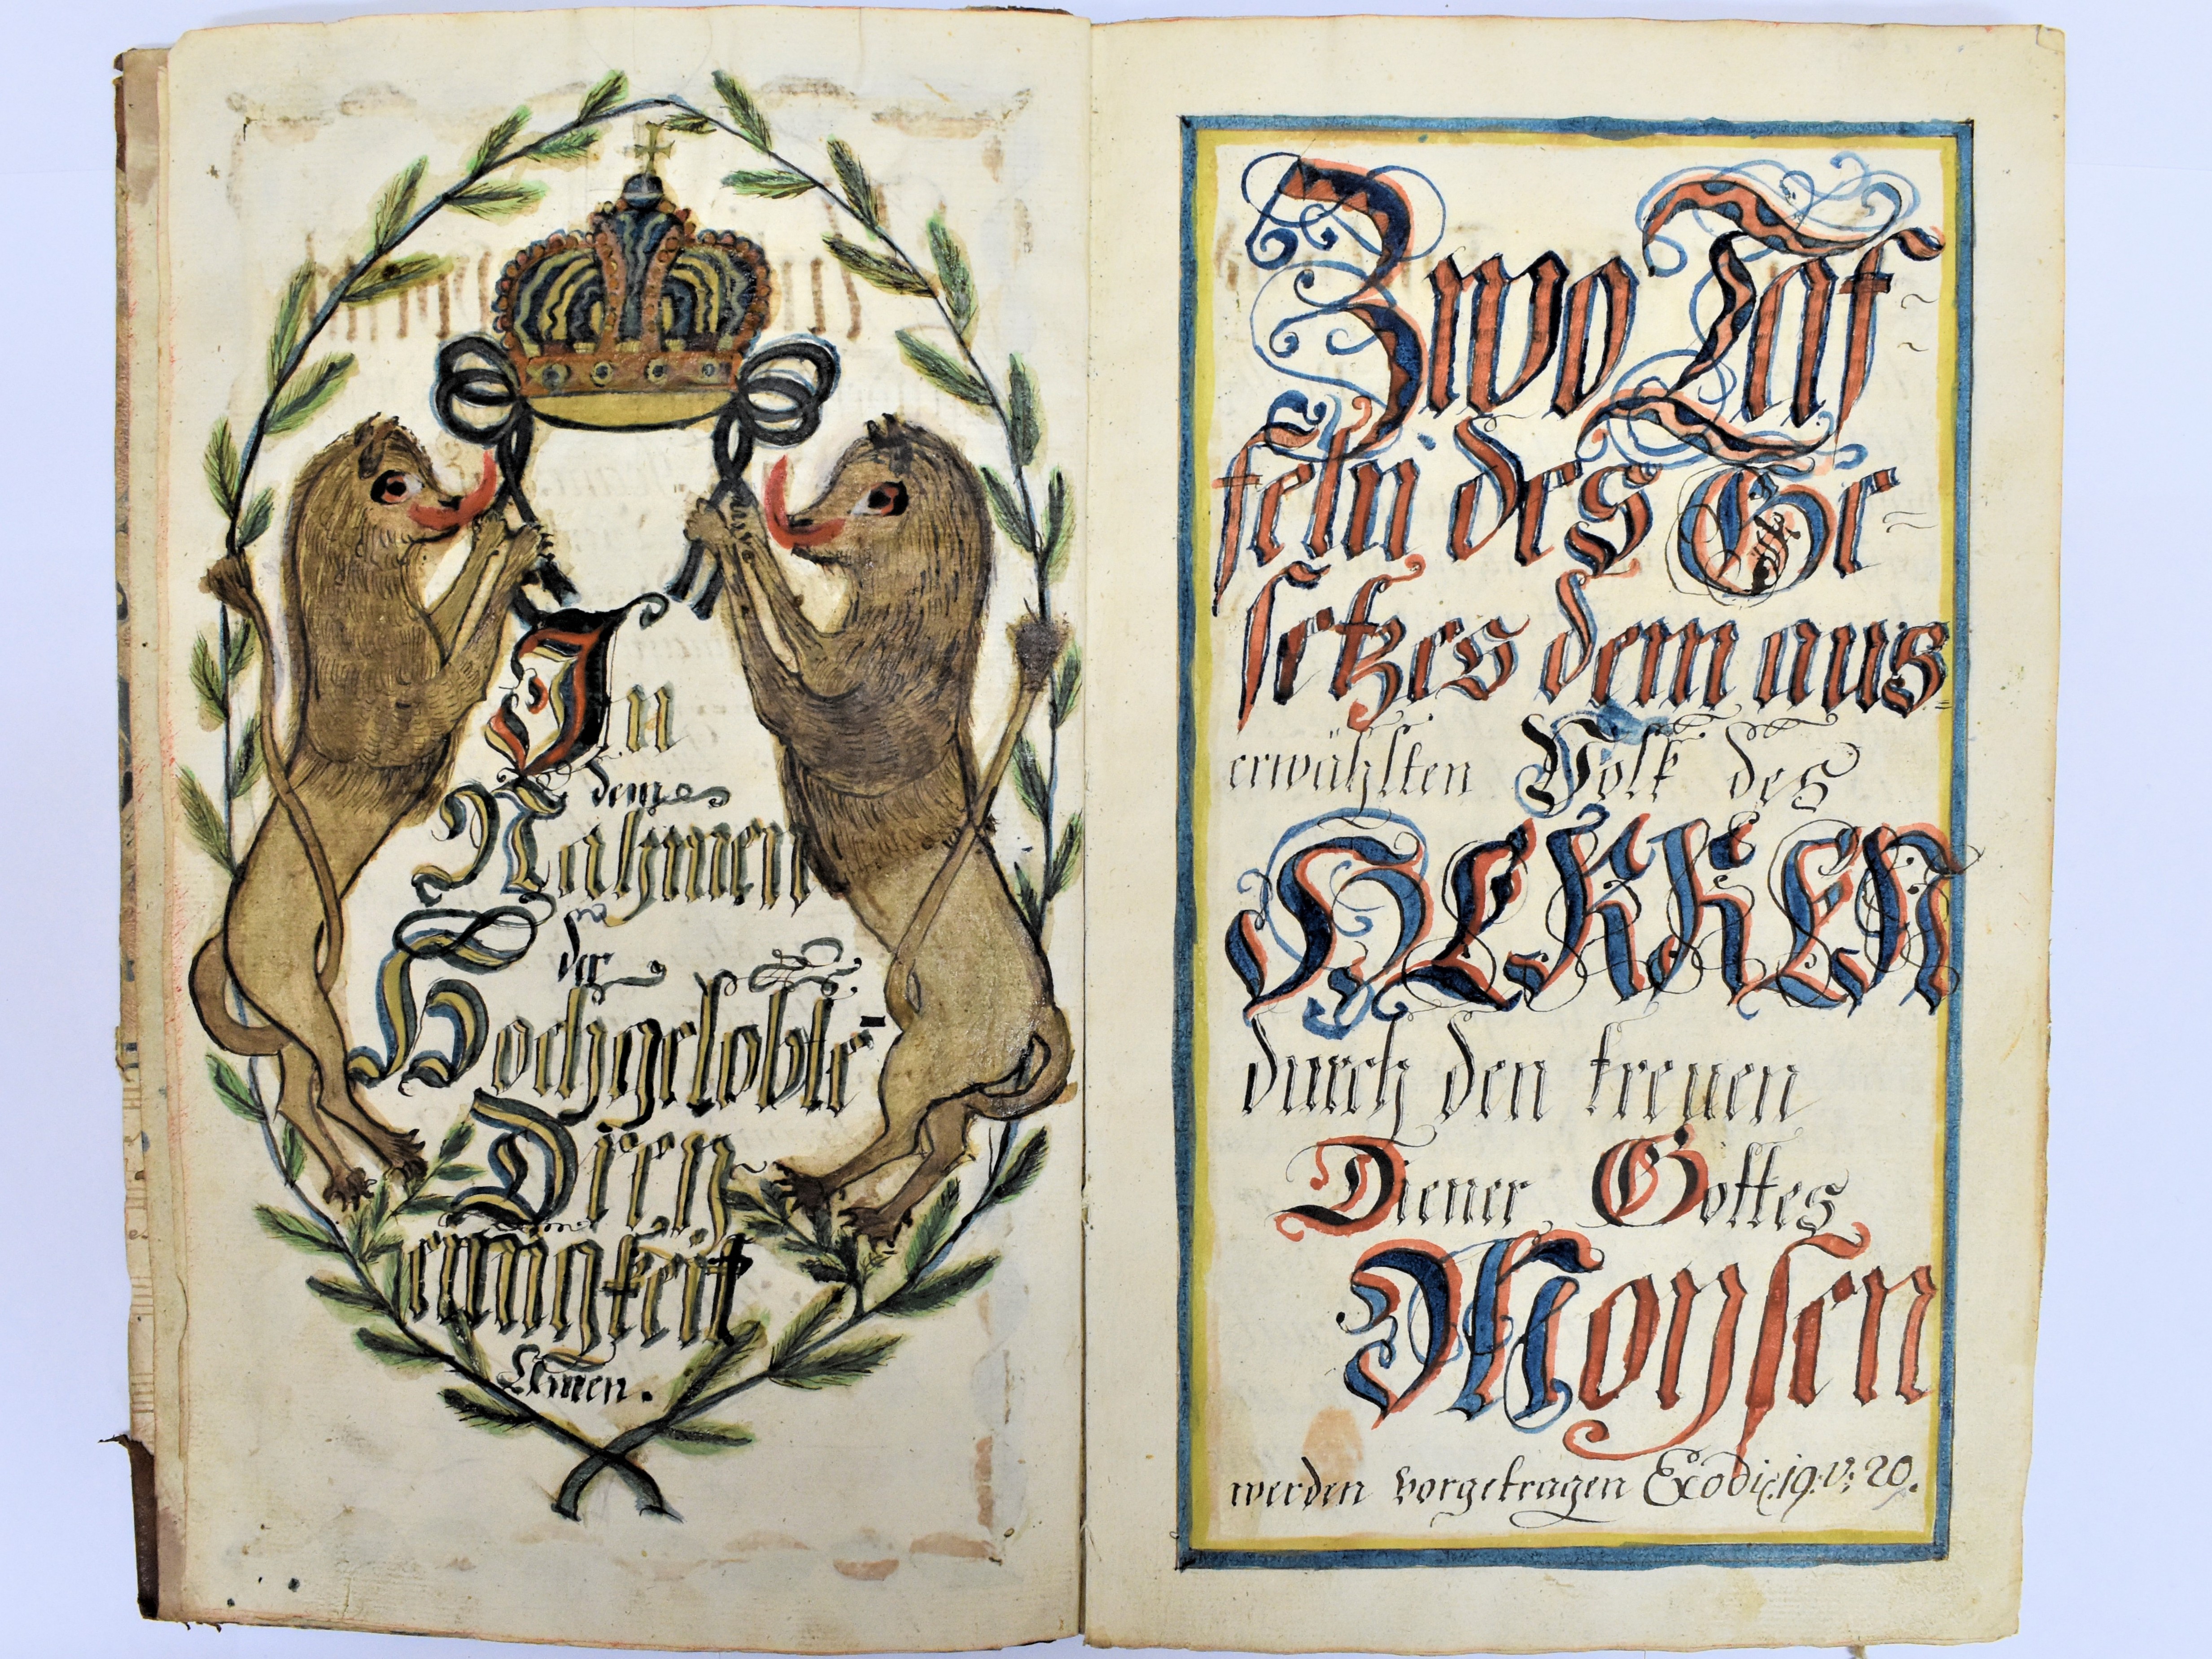 In
dem
Nahmen
der
Hochgelobte-
Drey
einigkeit
Amen.
Zwo Taf-
feln des Ge-
setzes dem aus-
erwählten Volk des
HERREN
durch den treuen
Diener Gottes
Moysen
werden vorgetragen Exodi c. 19. V: 20.